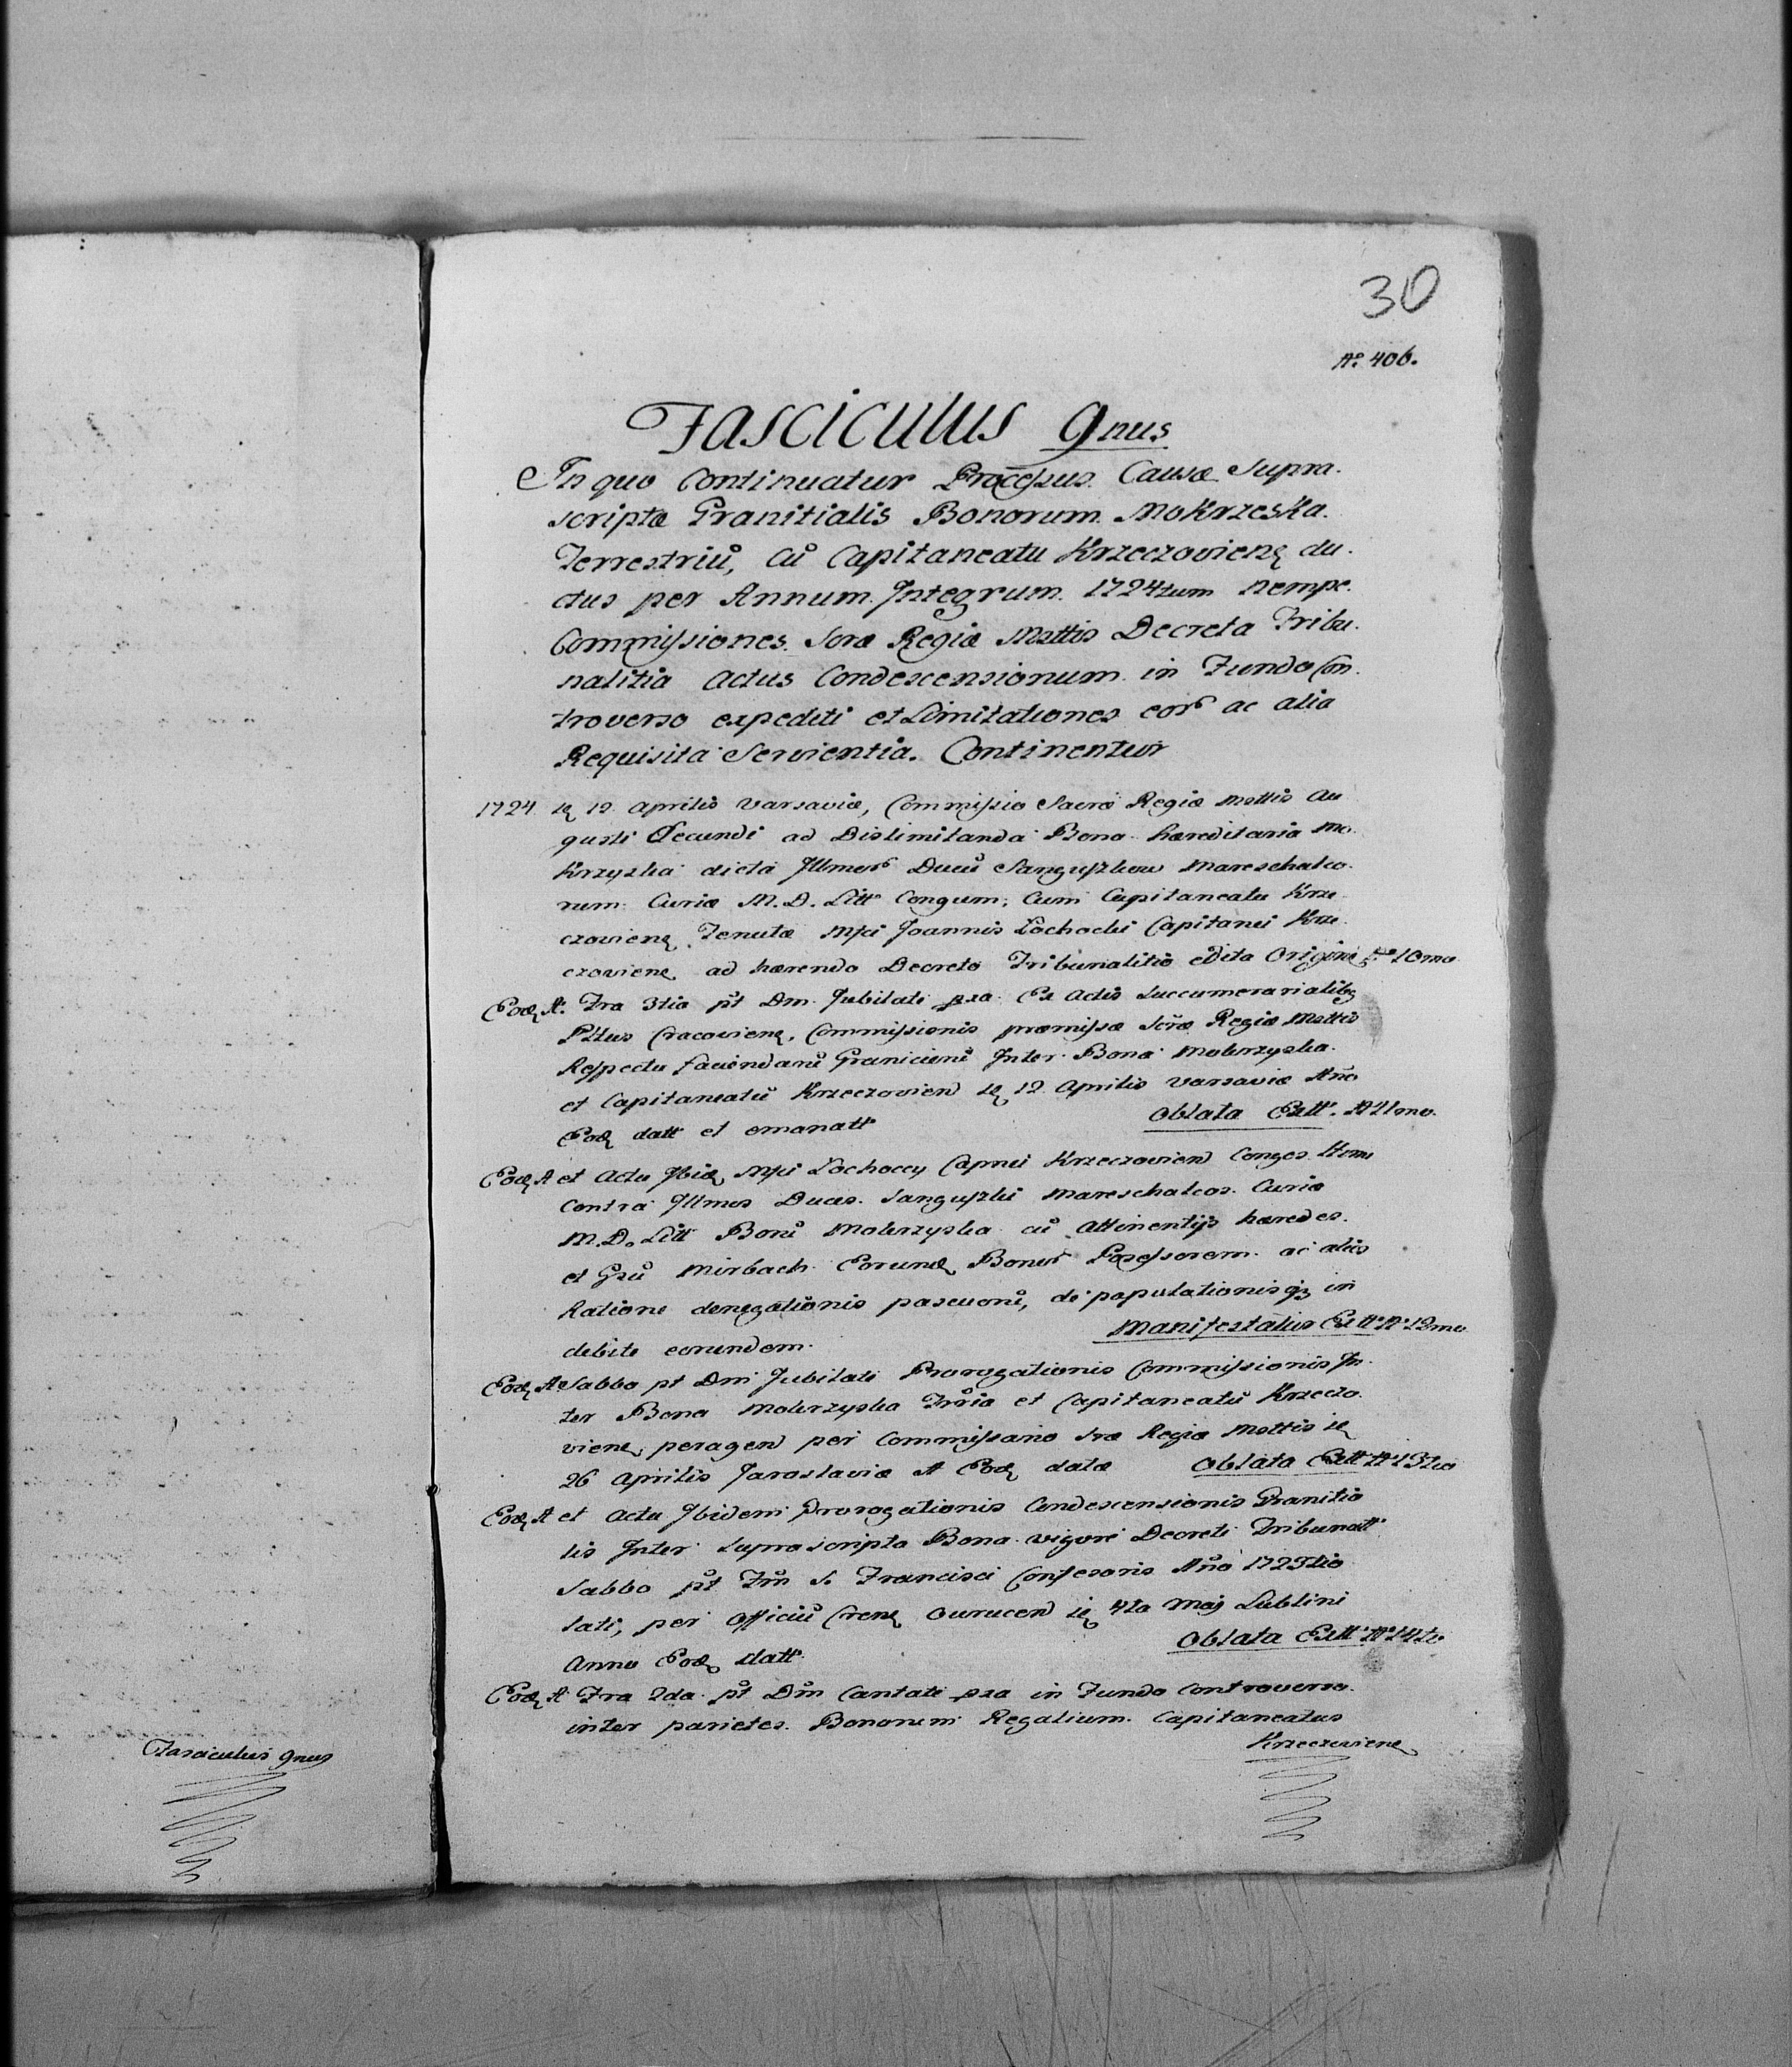 30
No. 406.
Fasciculus 9nus
In quo Continuatur Processus Causæ Supra.
scriptæ Granitialis Bonorum Mokrzeska.
Terrestriū, cū Capitaneatu Krzeczoviens du.
ctus per Annum Integrum 1724tum nempe.
Commissiones Soræ Regiæ Mattis Decreta Tribu.
nalitia Actus Condescensionum in Fundo Con.
troverso expediti et Limitationes eor ac alia
Requisita Servientia. Continentur
1724 ie 12 Aprilis Varsaviæ, Commissio Sacræ Regiæ Mattis Au
gusti Secundi ad Dislimitanda Bona hæreditaria Mo.
krzyska dicta Illmor Ducū Sanguszkow Mareschalco.
rum Curiæ M. D. Litt Congum, Cum Capitaneatu Krze
czoviens Tenutæ Mfci Joannis Łochocki Capitanei Krze.
czoviens ad hærendo Decreto Tribunalitio edita Origine 10mo
Eod A. Fra 3tia pt Dm Jubilate pra Ex Actis Succamerarialib
Pttus Cracoviens, Commissionis præmissæ Scræ Regiæ Mattis
Respectu faciendarū Granicierū Inter Bona Mokrzyska.
et Capitaneatū Krzeczovien ie 12 Aprilis Varsaviæ Año
Eod datt et emanatt Oblata Extt. N 11mo.
Eod A et Actu Ibid Mfci Łochoccy Capnei Krzeczovien Conges
Contra Illmos Duces Sanguszki Mareschalcos Curiæ
M. D. Litt Bonū Mokrzyska cū Attinentijs hæredes.
et Gsū Mirbach Eorund Bonor Possessorem ac alios
Ratione denegationis pascuorū, de populationisq in
debite eorundem. Manifestatio Extt N 12mo
Eod A Sabbo pt Dm Jubilate Prorogationis Commissionis In.
ter Bona Mokrzyska Tria et Capitaneatū Krzeczo.
viens, peragen per Commissario Sræ Regiæ Mattis ie
26 Aprilis Jaroslaviæ A Eod datæ Oblata Extt N 13tio
Eod A et Actu Ibidem Prorogationis Condescensionis Granitia
lis Inter Suprascripta Bona vigore Decreti Tribunatt
Sabbo pt Fm S. Francisci Confessoris Año 1723tio
lati, per Officiū Crens Ovrucen ie 4ta Maj Lublini
Anno Eod datt. Oblata Extt N 14to
Eod A Fra 2da pt Dm Cantate pra in Fundo Controverso.
inter parietes Bonorum Regalium Capitaneatus
Krzeczoviens
Fasciculus 9nus